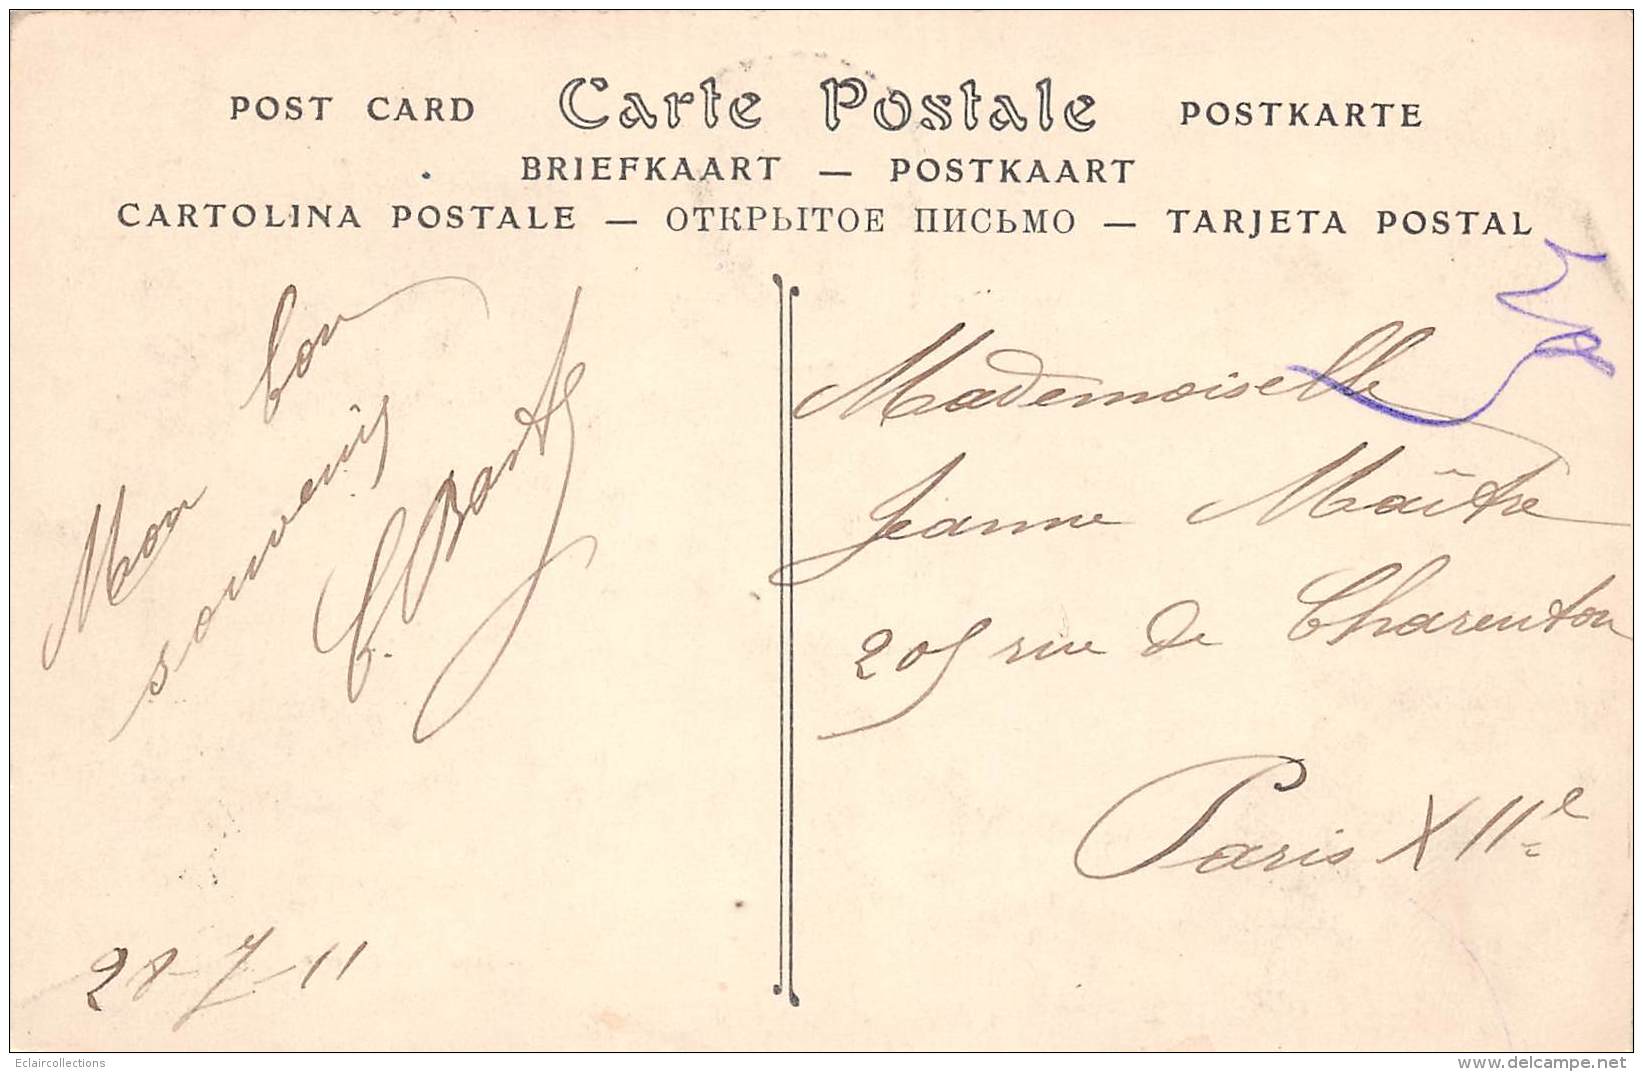 POST CARD Carte Postale POSTKARTE
BRIEFKAART — POSTKAART
CARTOLINA POSTALE — ОТКРЫТОЕ ПИСЬМО — TARJETA POSTAL
Mon bon
souvenir
Mademoiselle
Jeanne Maître
205 rue de Charenton
Paris XIIe
28-7-11
Eclaircollections
www.delcampe.net